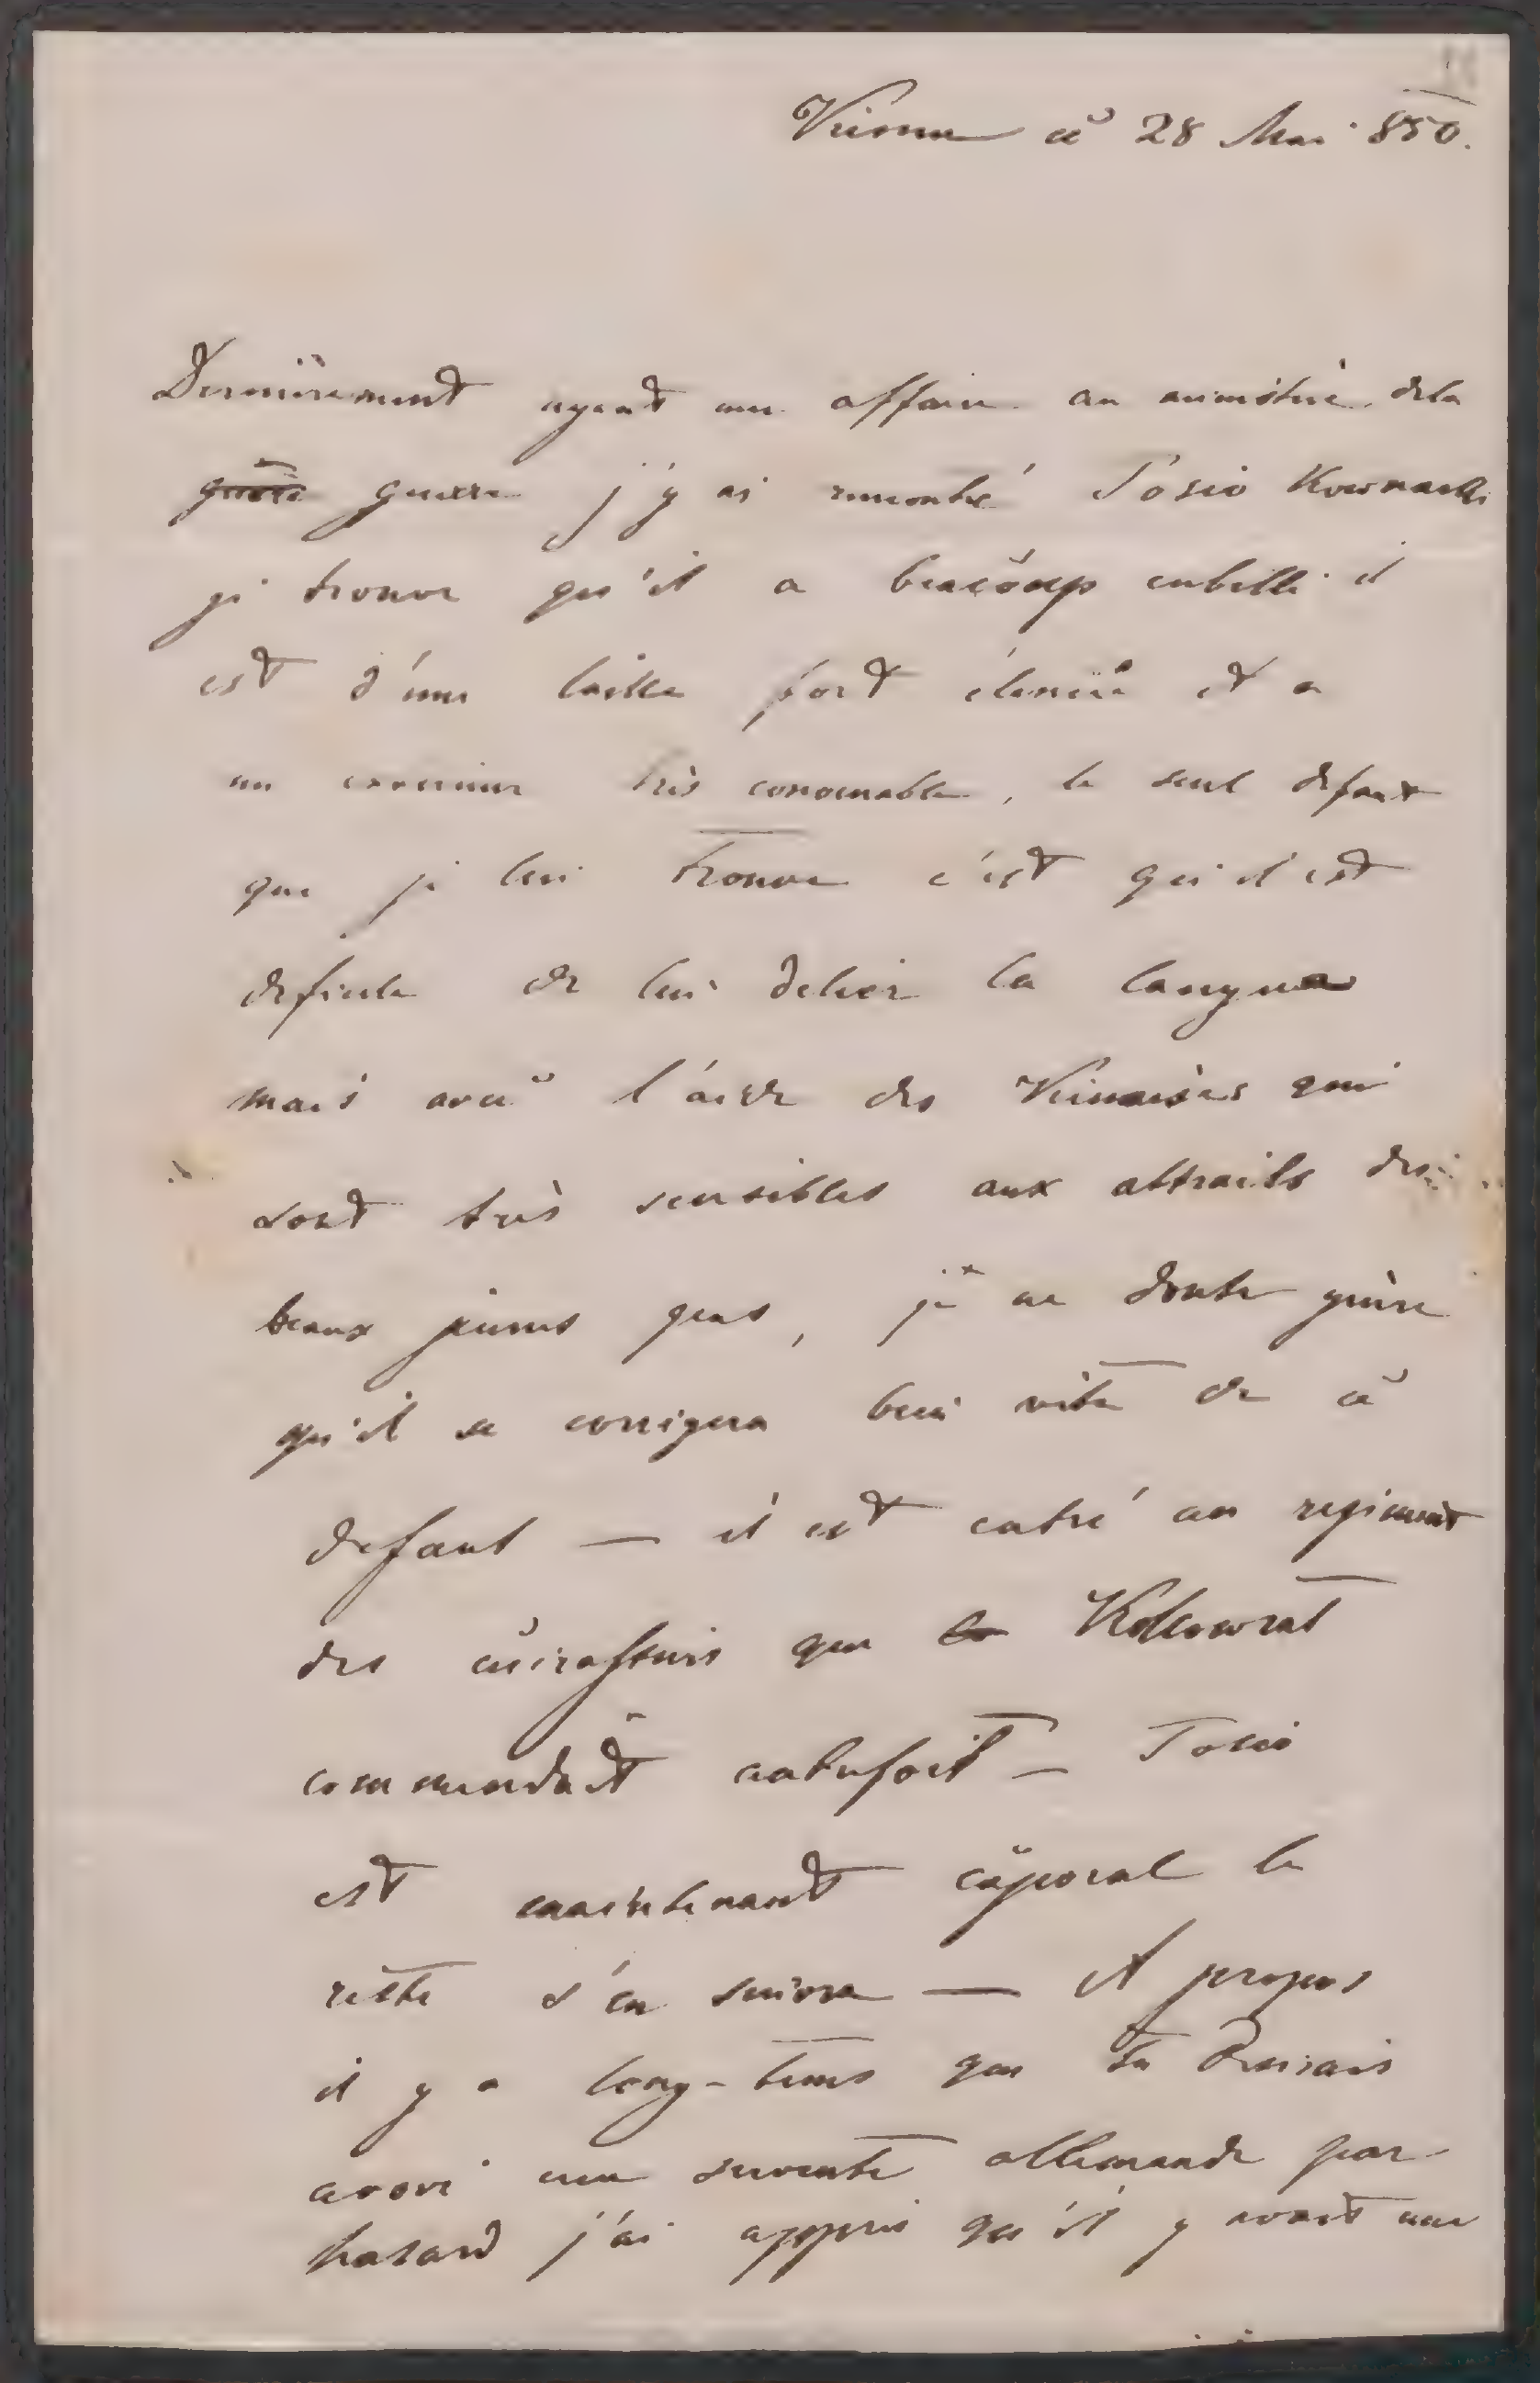 Vienne cè 28 Mai 850.
Dernièrement ayant une affaire au ministèrè dela
guère guerre j'y ai rencontré Tosio
je trouve qu'il a beacoup enbelli il
est d'une taille fort élencée et a
un exterieur très convenable, le seul defaut
que je lui trouve c'est qu'il est
deficile de lui delier la langue
mais avec l'aide des Viennoises qui
sont très sensibles aux attraits des
beaux jeunes gens, je ne doute guère
qu'il se corrigera bien vite de cè
defaut — il est entré au regiment
des cuirassiers que Kollowrat
commendait autrefoit — Tosio
est maintenant caporal le
reste s'en suivra — A propos
il y a long-tems que tu desirais
avoir une servente allemande par
hasard j'ai appris qu'il y avait une